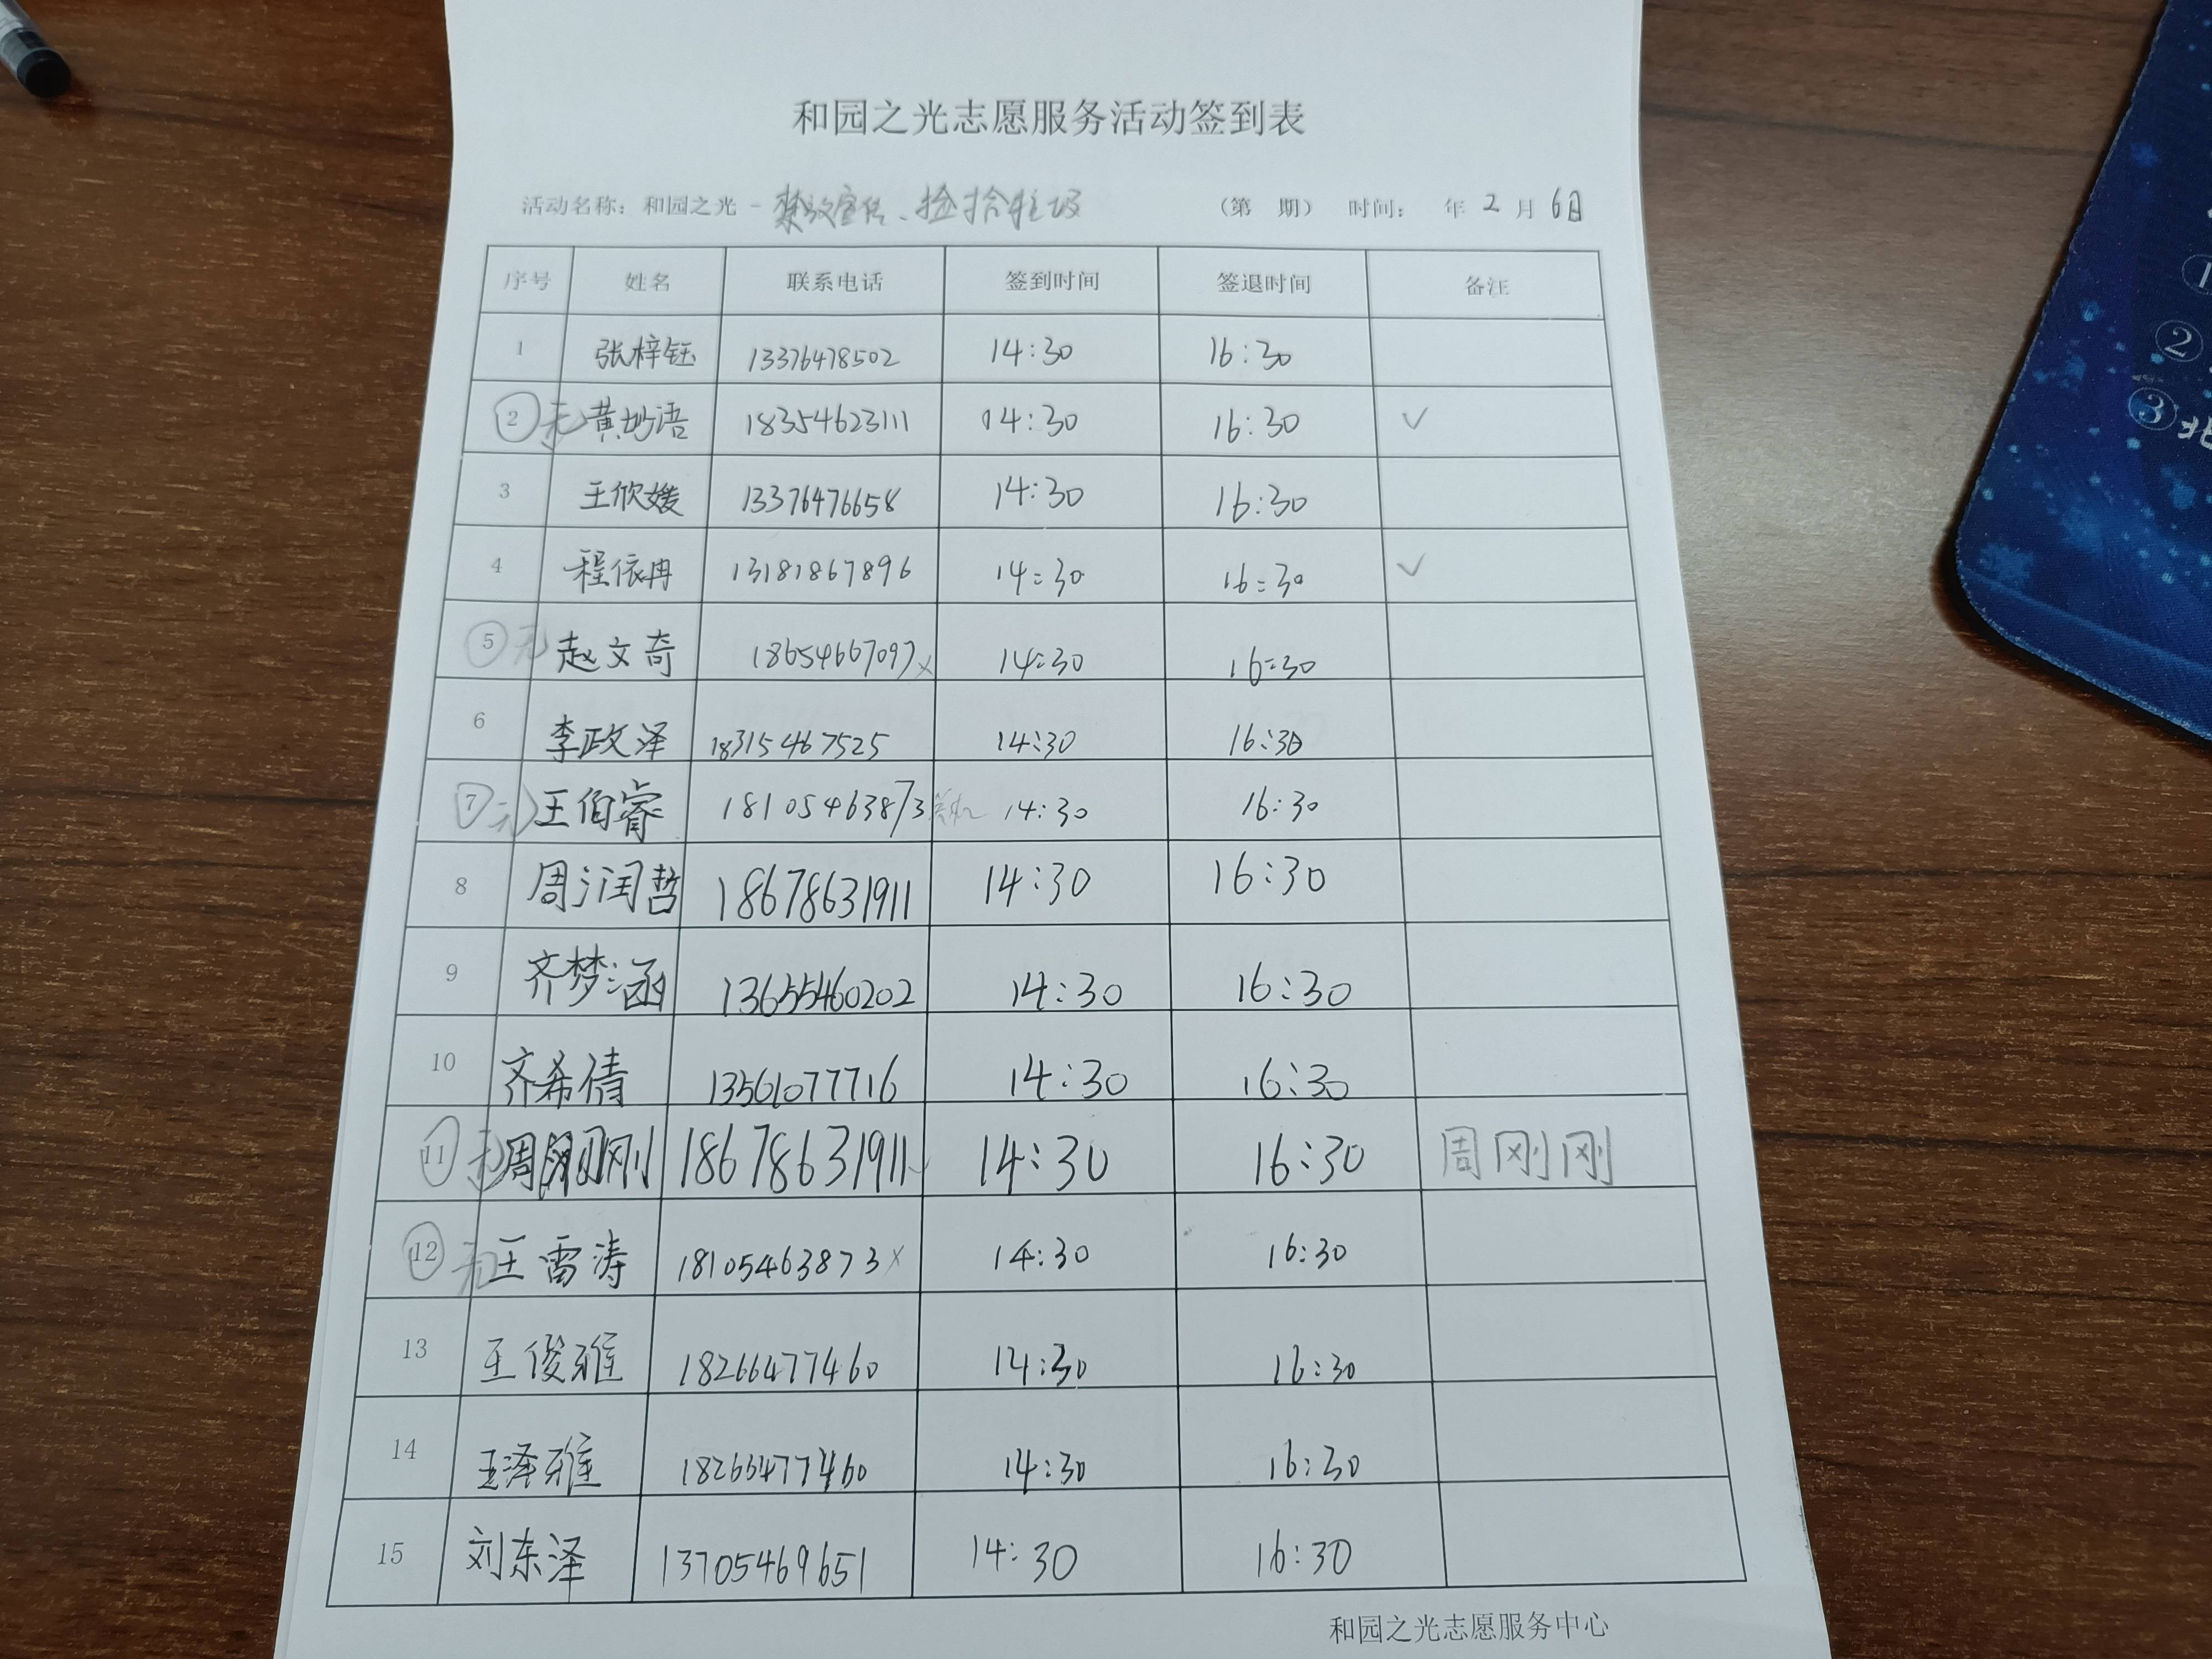 和园之光志愿服务活动签到表
活动名称：和园之光 - 禁放宣传、捡拾垃圾 （第 期） 时间： 年 2 月 6日
序号 姓名 联系电话 签到时间 签退时间 备注
1 张梓钰 13376478502 14:30 16:30
2 无 黄妙语 18354623111 14:30 16:30 ✓
3 王欣媛 13376476658 14:30 16:30
4 程依冉 13181867896 14:30 16:30 ✓
5 无 赵文奇 18654667097 x 14:30 16:30
6 李政泽 18315467525 14:30 16:30
7 无 王伯睿 18105463873 14:30 16:30
8 周润哲 18678631911 14:30 16:30
9 齐梦涵 13655460202 14:30 16:30
10 齐希倩 13561077716 14:30 16:30
11 无 周刚刚 18678631911 14:30 16:30 周刚刚
12 无 王雷涛 18105463873 x 14:30 16:30
13 王俊雅 18266477460 14:30 16:30
14 王泽雅 18266477460 14:30 16:30
15 刘东泽 13705469651 14:30 16:30
和园之光志愿服务中心
1
2
3 北